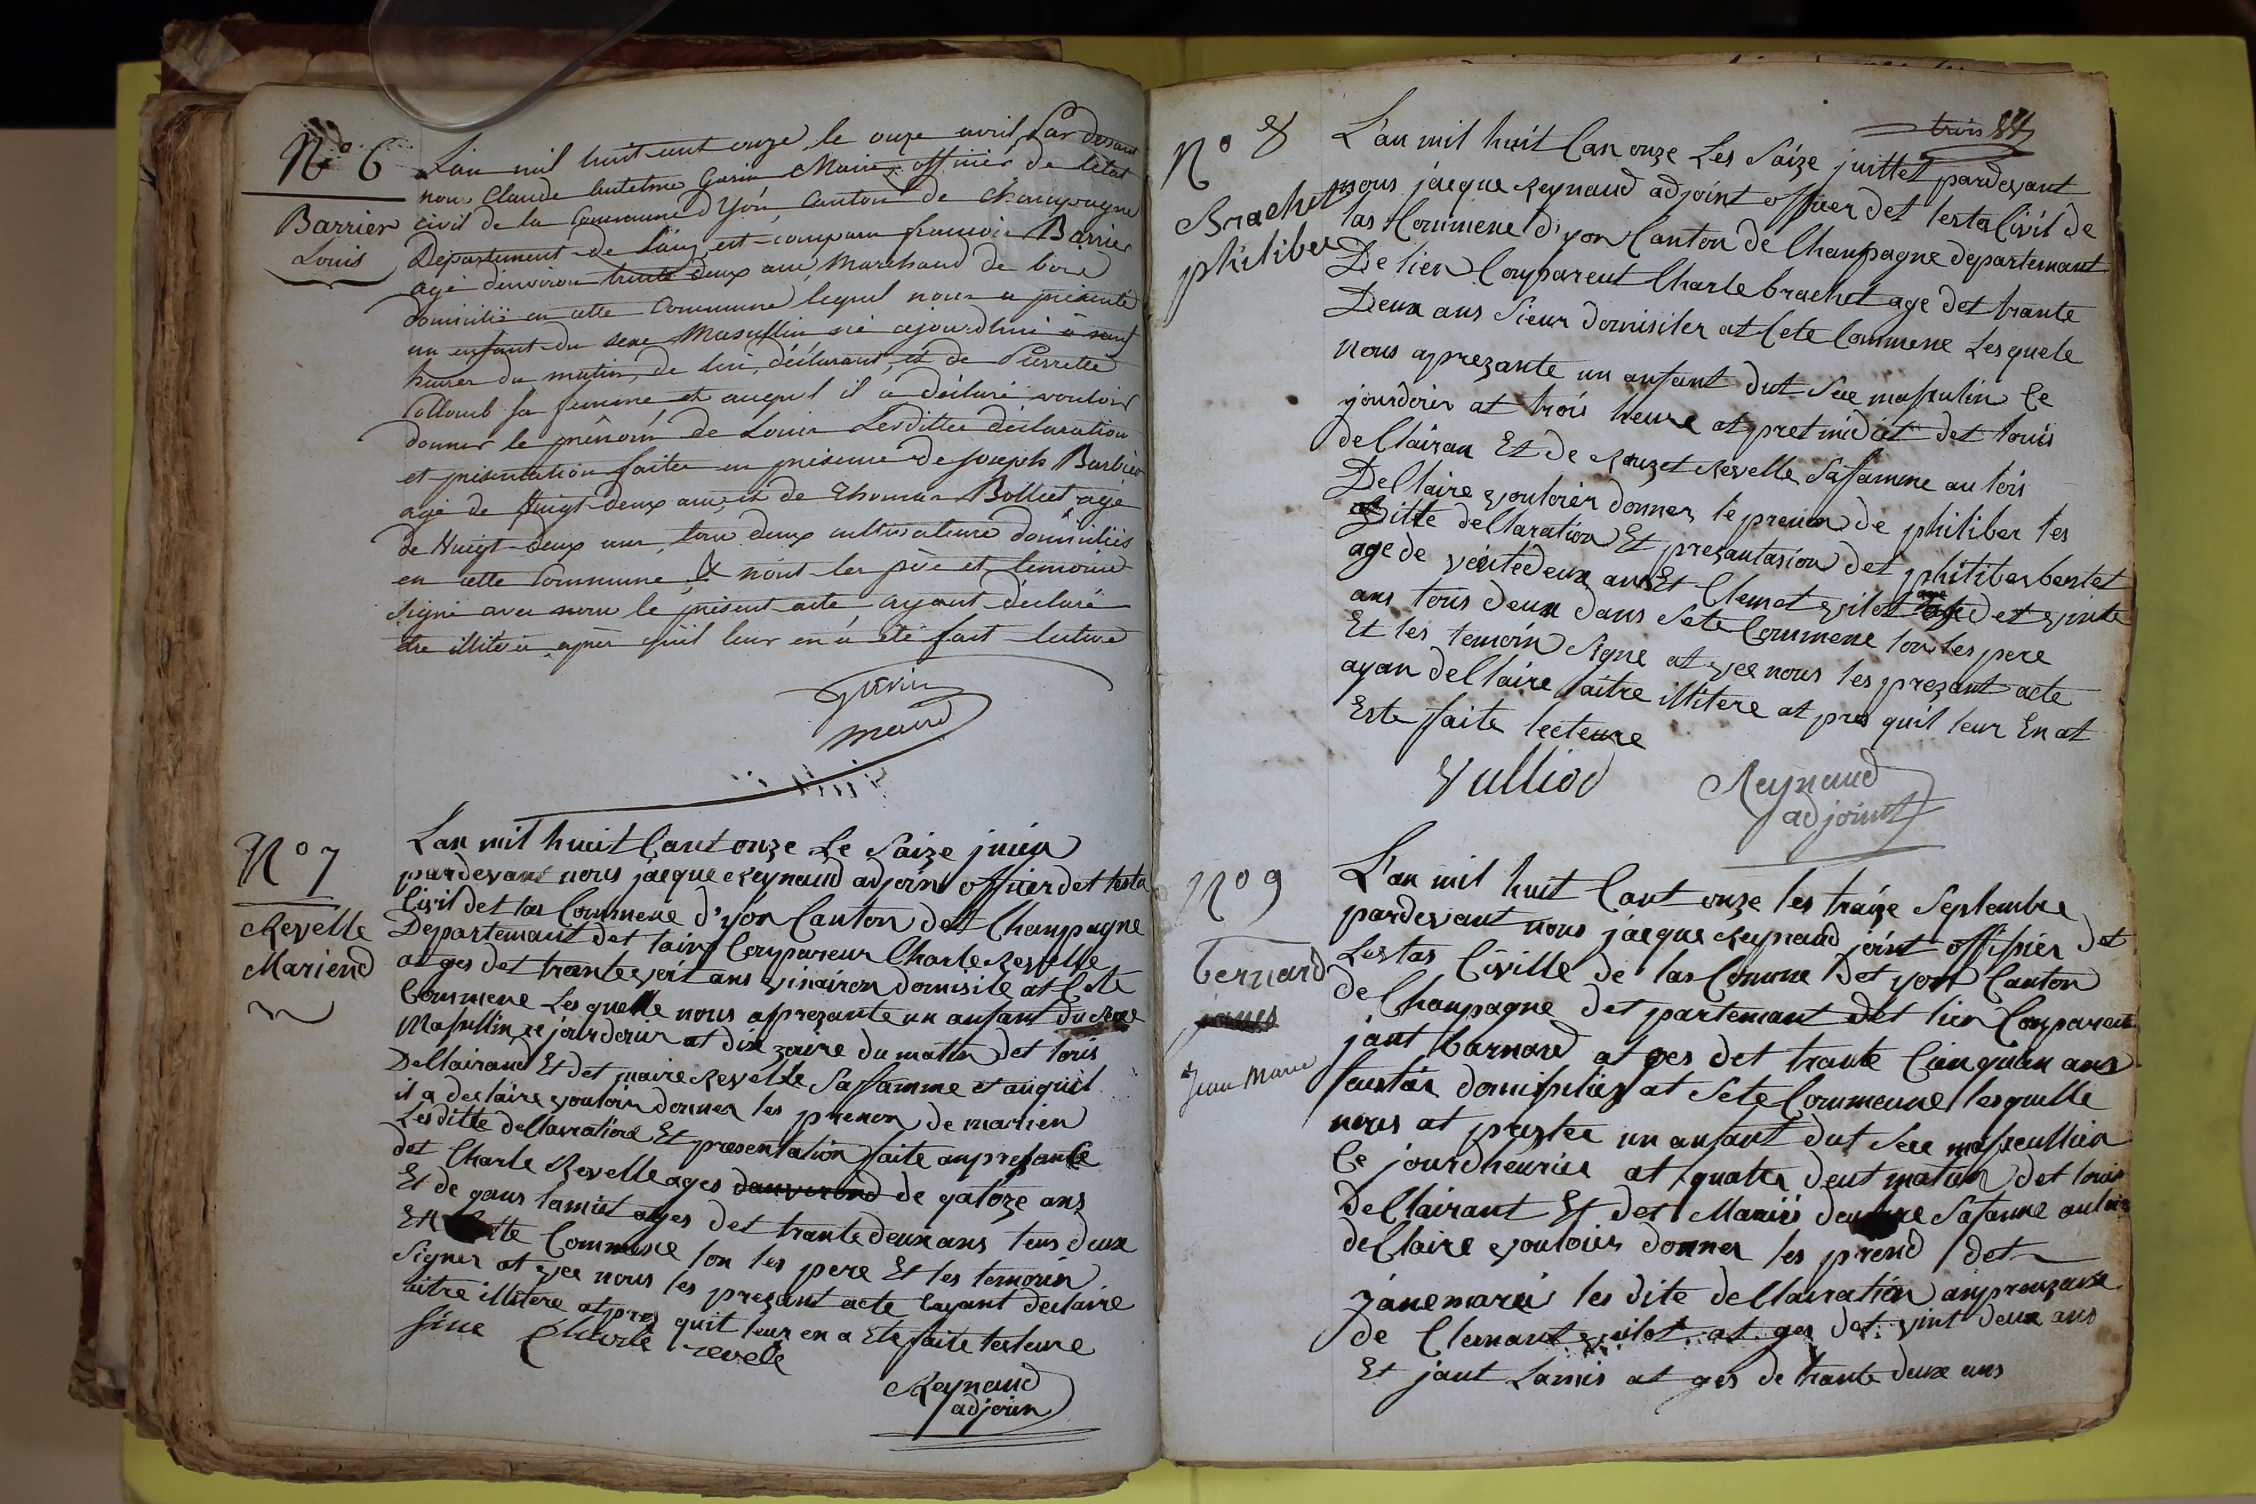 N° 6
Barrier
Louis
L'an mil huit cent onze le onze avril Par devant
nous Claude Antelme Guérin Maire officier de l'état
civil de la Commune d'Yon, Canton de Champagne
Département de l'ain, est comparu francois Barrier
agé d'environ trente deux ans, Marchand de bois
domicilié en cette Commune lequel nous a présenté
un enfant du sexe Masculin né aujourdhui à neuf
heures du matin, de lui, déclarant, et de Pierrette
Collomb sa femme et auquel il a déclaré vouloir
donner le prénom de Louis Lesdittes déclaration
et présentation faites en présence de Joseph Barbier
agé de Vuigt-deux ans, et de Thomas Bollut agé
de Vuigt-deux ans, tous deux cultivateurs domiciliés
en cette Commune, & n'ont les père et temoins
signé avec nous le présent acte ayant déclaré
être illitéré après qu'il leur en a été fait lecture
maire
N° 7
Revelle
Mariend
L'an mil huit Cant onze Le Saize juin
pardevant nous jacque Reynaud adjoint officer det lesta
Civil det las Commene d'yon Canton dett Champagne
Departemant det lain Compareur Charle Revelle
at ges det trante voit ans vinairon domisile at Cete
Commene Les quelle nous apprezante un anfant du sexe
Masullin ce jourdouir at dix zaire du matin det loris
Dellairand Et det maire Revelle Saffamme et auquil
il a declaire vouloir donner les prenon de marien
Lesditte dellairatione Et presentation faite anpresance
det Charle Revelle ages de gatoze ans
Et de gaus lamit ages det trante deux ans tous deux
En Cette Commene lon les pere Et les temoin
Signer at vec nous les prezant acte layant declaire
aitre illitere at pres quit leur en a Ete faite lecteure
sine Charle revele
Reynaud
adjoin
trois 84
N° 8
Brachet
philiber
L'an mil huit Can onze Les Saize juittet pardevant
nous jacque Reynaud adjoint officer det lesta Civil de
las Commene d'yon Canton de Champagne departemant
De lien Comparent Charle brachet age det trante
Deux ans sieur domisiler at Cete Commene Lesquele
nous aprezante un anfant dut See masculin Ce
jourdoir at trois heure at pret midiet det louis
dellairan Et de Rouzet Revelle Safamme au lois
Dellaire vouloier donner le prenon de philiber les
Ditte dellaration Et presantasion det philiber bertet
age de vente deux ans Et Clemat vilot age det vinte
ans tous deux dans Sete Commene lon les pere
Et les temoin Signe at vee nous les prezant acte
ayan dellaire laitre illitere at pres quil leur En at
Este faite lecteure
Vulliod
Reynaud
adjoint
N° 9
bernard
Jean Marie
L'an mil huit Cant onze les traize Septembre
pardevant nous jacque Reynaud joint offisier det
Lestas Civille de las Comune Det yon Canton
de Champagne det partemant det lien Comparent
jant barnard at ges det trante Cinq quan ans
domisilier at Sete Commenne lesquelle
nous at preste un anfant dut See masceullin
Ce jourdheurie at quatre deut matin det louis
Dellairant Et det Marie Safamme aulois
dellaire vouloier donner les prend det
janemarei les dite dellairation anprenzanse
de Clemant vilot at ges det vint deux ans
Et jant Lamis at ges de trante deux ans